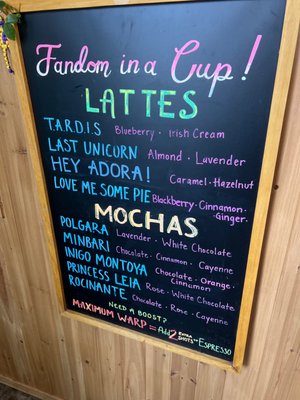 Fandom in a Cup!
LATTES
T.A.R.D.I.S Blueberry · Irish Cream
LAST UNICORN Almond · Lavender
HEY ADORA! Caramel · Hazelnut
LOVE ME SOME PIE Blackberry · Cinnamon ·
· Ginger ·
MOCHAS
POLGARA Lavender · White Chocolate
MINBARI Chocolate · Cinnamon · Cayenne
INIGO MONTOYA Chocolate · Orange ·
Cinnamon
PRINCESS LEIA Rose · White Chocolate
ROCINANTE Chocolate · Rose · Cayenne
NEED A BOOST?
MAXIMUM WARP = Add 2 EXTRA SHOTS OF ESPRESSO